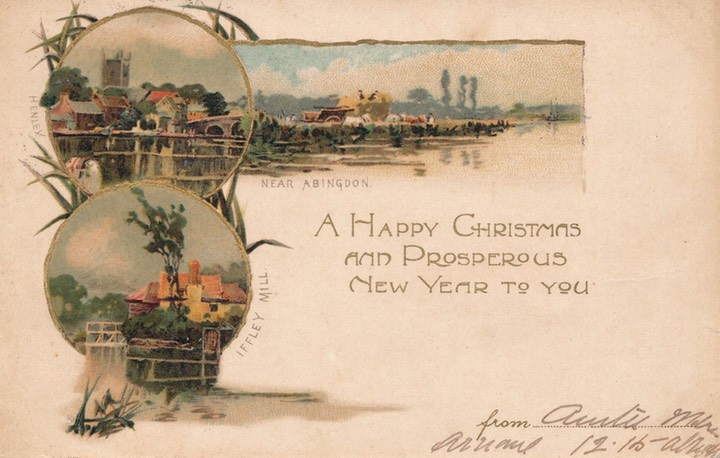 HENLEY
NEAR ABINGDON.
IFFLEY MILL
A HAPPY CHRISTMAS
AND PROSPEROUS
NEW YEAR TO YOU
from Auntie
12.15